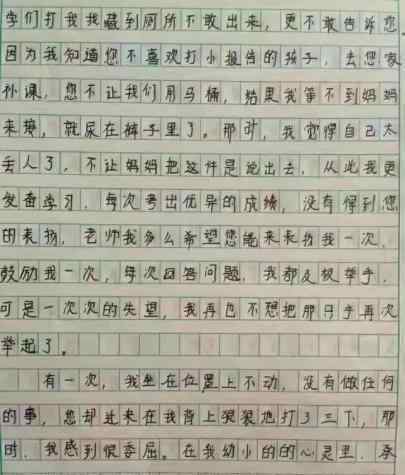 学们打我我藏到厕所不敢出来，更不敢告诉您。
因为我知道您不喜欢打小报告的孩子，去您家
补课，您不让我们用马桶，结果我等不到妈妈
来接，就尿在裤子里了。那时，我觉得自己太
丢人了，不让妈妈把这件是说出去，从此我更
发奋学习，每次考出优异的成绩，没有得到您
的表扬，老师我多么希望您能来表扬我一次，
鼓励我一次，每次回答问题，我都及极举手，
可是一次次的失望，我再也不想把那只手再次
举起了。
有一次，我坐在位置上不动，没有做任何
的事，您却过来在我背上狠狠地打了三下，那
时，我感到很委屈。在我幼小的的心灵里，